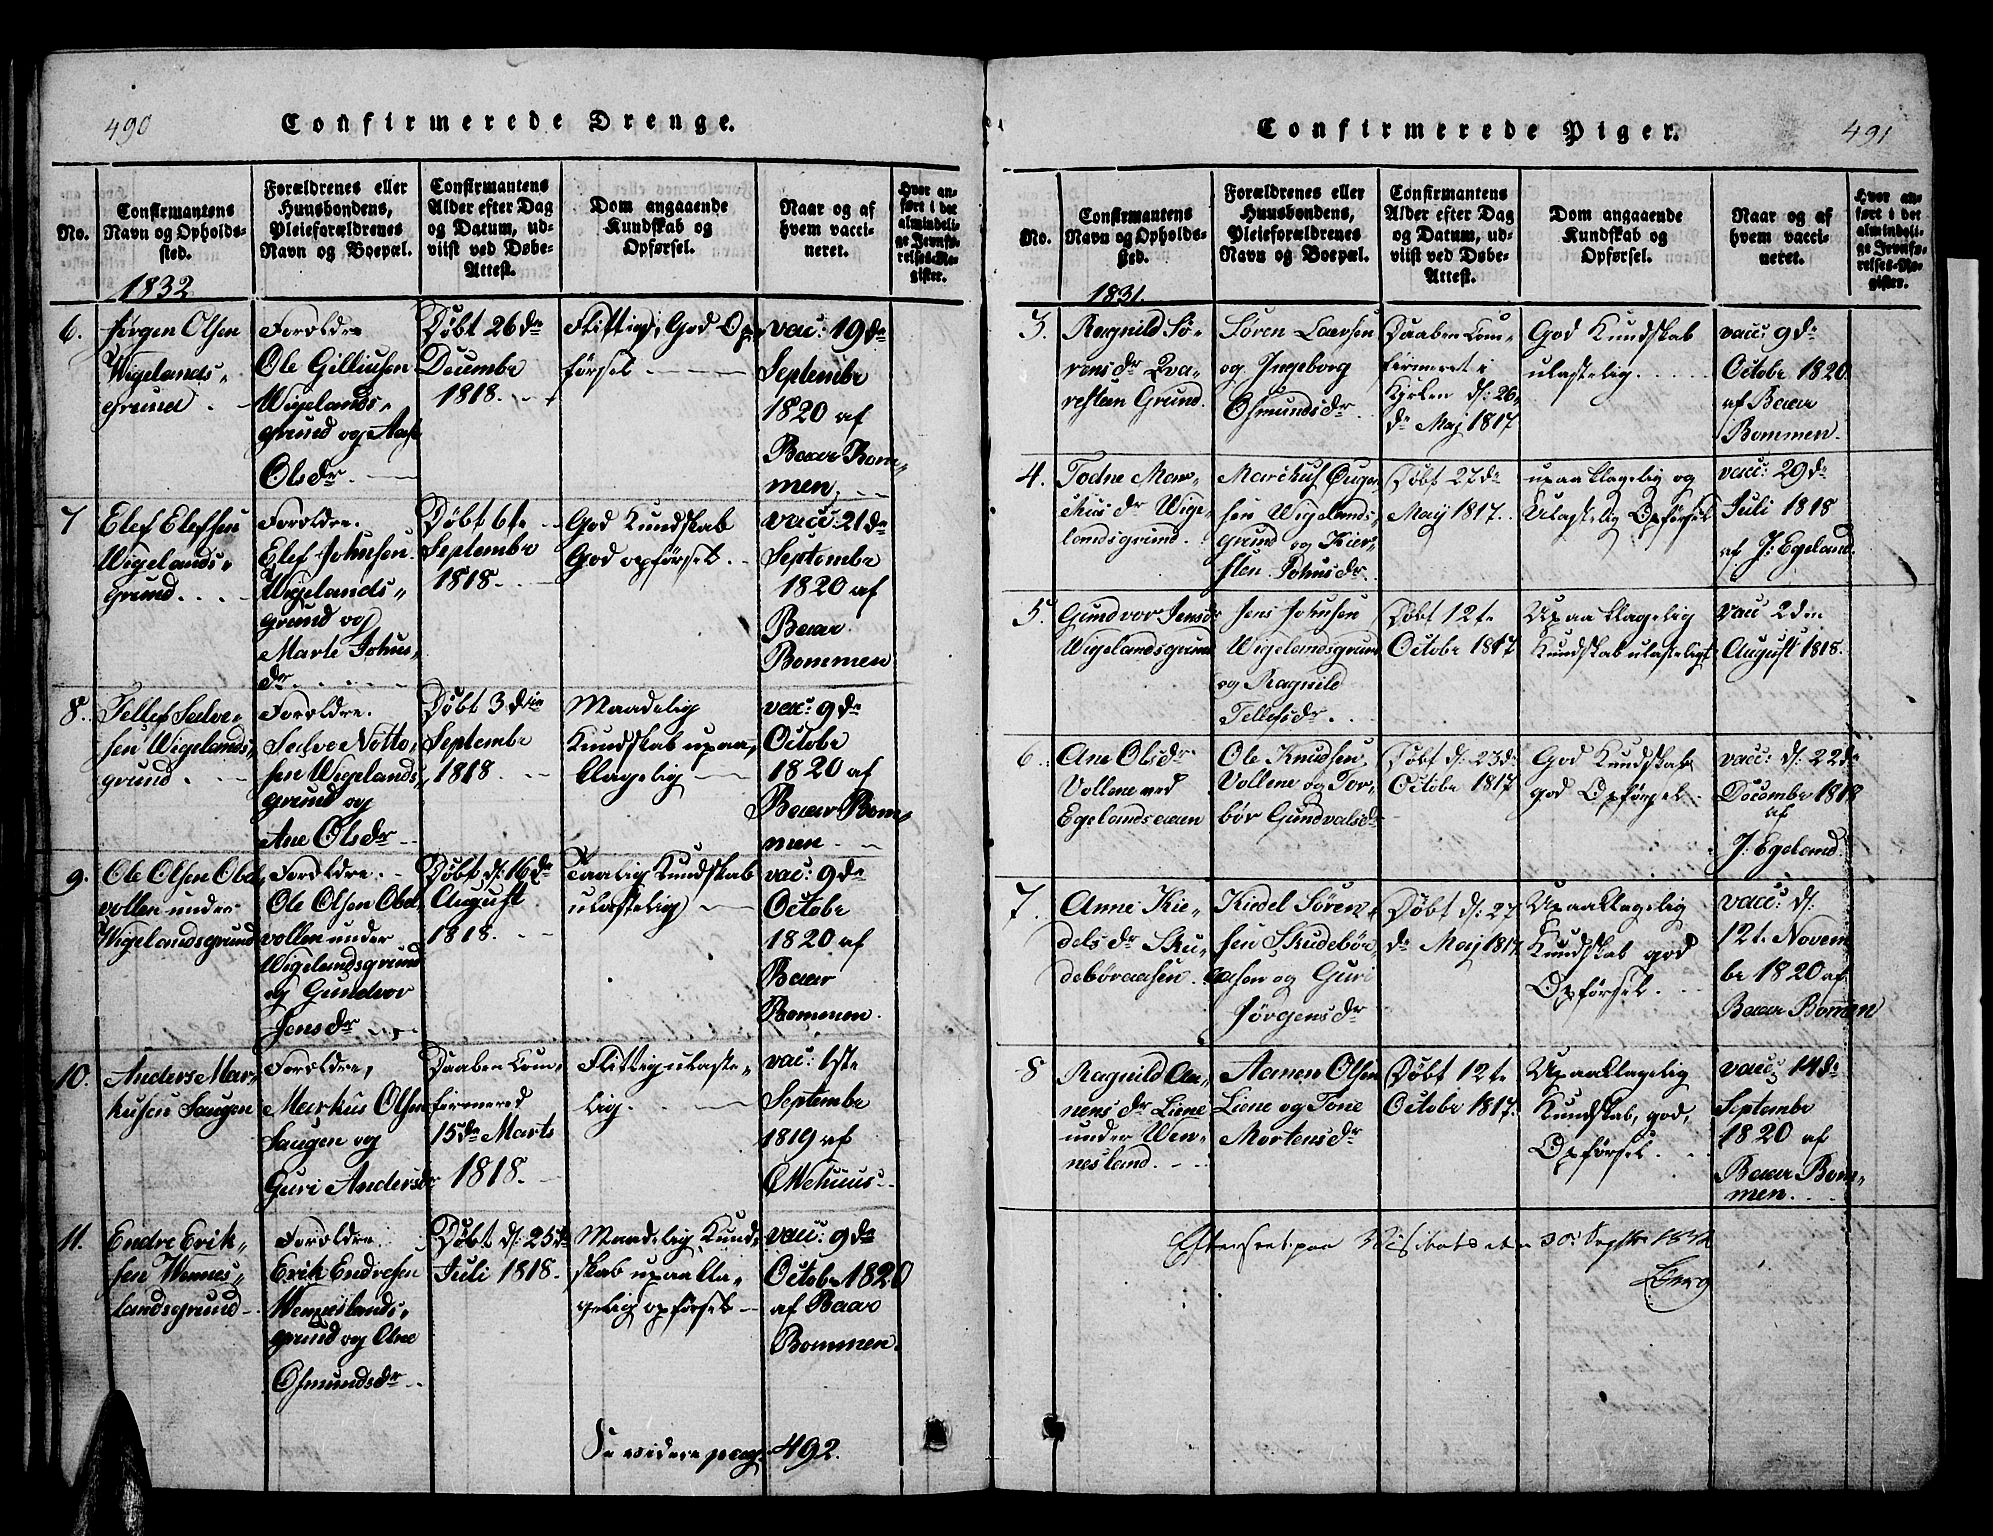 490
Confirmerede Drenge.
No.
Confirmantens
Navn og Opholds-
sted.
Forældrenes eller
Huusbondens,
Pleieforældrenes
Navn og Boepæl.
Confirmantens
Alder efter Dag
og Datum, ud-
viist ved Døbe-
Attest.
Dom angaaende
Kundskab og
Opførsel.
Naar og af
hvem vacci-
neret.
Hvor an-
ført i det
almindeli-
ge Jevnfø-
relses-Re-
gister.
1832
6.
Jørgen Olsen
Wigelands-
grund.
Foroldre
Ole Gelliusen
Wigelands-
grund og Aase
Olsdr.
Døbt 26de
Decembe
1818.
Flittig, God Op-
førsel
vac: 19de
Septembe
1820 af
Baar Bom-
men
7
Elef Elefsen
Wigelands-
Grund.
Foroldre.
Elef Johnsen
Wigelands-
grund og
Marte Johns-
dr
Døbt 6te
Septembe
1818.
God Kundskab
God opførsel.
vacc: 21de
Septembe
1820 af
Baar
Bommen
8.
Tellef Salve-
sen Wigelands-
grund.
Foroldre.
Salve Notto-
sen Wigelands-
grund og
Ane Olsdr
Døbt 3die
Septembe
1818.
Maadelig
Kundskab upaa-
klagelig
vac: 9de
Octobe
1820 af
Baar Bom-
men
9.
Ole Olsen Obel-
vollen under
Wigelandsgrund
Foroldre.
Ole Olsen Obel-
vollen under
Wigelandsgrund
og Gundvor
Jensdr
Døbt d: 16de
August
1818.
Taalig Kundskab
ulastelig
vac: 9de
Octobe
1820 af
Baar
Bommen.
10.
Anders Mar-
kusen Saugen
Foroldre,
Markus Olsen
Saugen og
Guri Andersdr
Daaben Com-
firmered
15de Marts
1818.
Flittig ulaste-
lig.
vac: 1ste
Septembe
1819 af
11.
Endre Erik-
sen Wennes-
landsgrund
Foroldre.
Erik Endresen
Wenneslands-
grund og Ane
Osmundsdr
Døbt d: 25de
Juli 1818.
Maadelig Kund-
skab upaakla-
gelig opførsel
vacc: 9de
Octobe 1820
af Baar
Bommen.
Se videre pag: 492.
491
Confirmerede Piger.
No.
Confirmantens
Navn og Opholds-
sted.
Forældrenes eller
Huusbondens,
Pleieforældrenes
Navn og Boepæl.
Confirmantens
Alder efter Dag
og Datum, ud-
viist ved Døbe-
Attest.
Dom angaaende
Kundskab og
Opførsel.
Naar og af
hvem vacci-
neret.
Hvor an-
ført i det
almindeli-
ge Jevnfø-
relses-Re-
gister.
1831.
3.
Ragnild Sø-
rensdr Qva-
restein Grund.
Søren Larsen
og Ingeborg
Osmundsdr.
Daaben Com-
firmeret i
Kirken d: 26-
de Maj 1817
God Kundskab
ulastelig.
vacc: 9de
Octobe 1820
af Baar
Bommen.
4.
Todne Mar-
kusdr Wige-
landsgrund.
Marckus
sen Wigelands-
grund og Kier-
sten Johnsdr.
Døbt 27de
Maij 1817.
upaaklagelig og
Ulastelig Opførsel
vacc: 29de
Juli 1818
af J: Egeland.
5.
Gundvor Jensdr
Wigelandsgrund
Jens Johnsen
Wigelandsgrund
og Ragnild
Tellefsdr.
Døbt 12te
Octobe 1817
Upaaklagelig
Kundskab ulasteligt
vacc 2den
August 1818.
6.
Ane Olsdr
Vollene ved
Egelandsaaen
Ole Knudsen
Vollene og Tor-
bør Gundvalsdr
Døbt d: 23de
Octobe 1817
God Kundskab
god Opførsel.
vacc: d: 22de
Decembe 1818
af
J: Egeland.
7.
Anne Kie-
delsdr Sku-
deboraasen
Kiedel Søren-
sen Skudebor-
aasen og Guri
Jørgensdr
Døbt d: 27
de Maj 1817.
Upaaklagelig
Kundskab god
Opførsel.
vacc: d:
12t. Novem
be 1820 af
Baar Bommen
8
Ragnild Aa-
nensdr Liene
under Wen-
nesland.
Aanen Olsen
Liene og Tone
Mortensdr
Døbt 12te
Octobe 1817.
Upaaklagelig
Kundskab, god,
Opførsel.
vacc; 14de
Septembe
1820 af
Baar Bom-
men.
Efterseet paa Visitats den 30. Septbr 1832
Berg